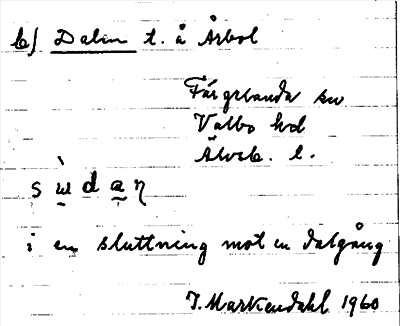 b) Dalen t. å Årbol
Färgelanda sn
Valbo hd
Älvsb. l.
i en sluttning mot en dalgång
J. Markendahl 1960